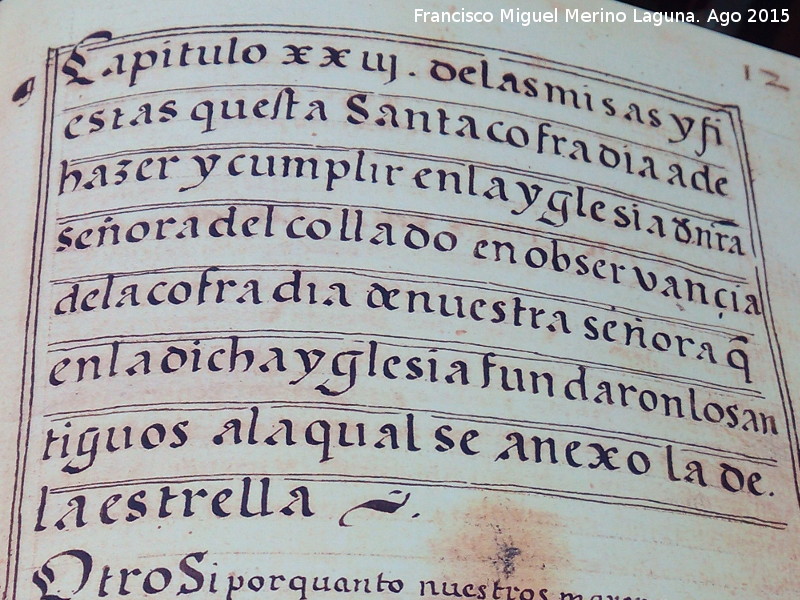 Francisco Miguel Merino Laguna. Ago 2015
12
Capitulo xxiij. de las misas y fi
estas questa Santa cofradia a de
hazer y cumplir en la yglesia d. nr̃a
señora del collado en observançia
de la cofradia de nuestra señora q̃
en la dicha yglesia fundaron los an
tiguos a la qual se anexo la de.
la estrella .
Otro Si por quanto nuestros